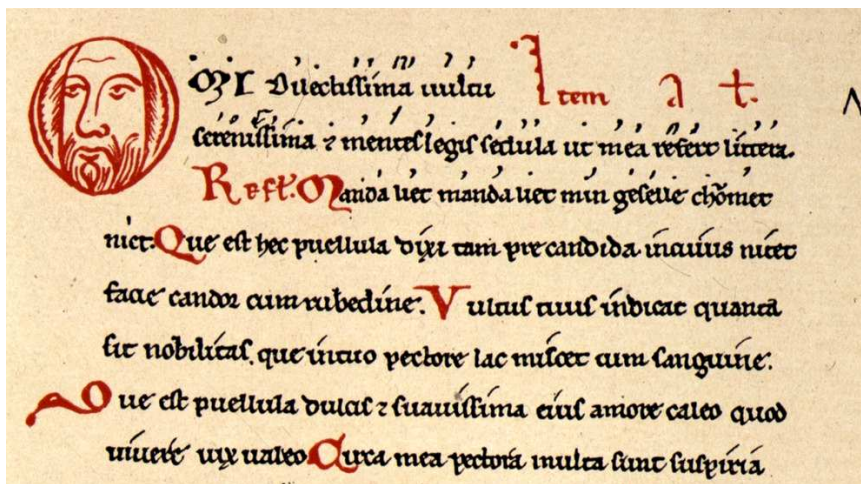 O MI Dilectissima uultu Item at.
serenissima ⁊ mentes legis sedula ut mea refert littera.
Refl. Manda liet manda liet min geselle chōmet
niet. Que est hec puellula dixi tam precandida incuius nitet
facie candor cum rubedine. Vultus tuus indicat quanta
sit nobilitas. que intuo pectore lac miscet cum sanguine.
Que est puellula dulcis ⁊ suauissima eius amore caleo quod
uiuere uix ualeo Circa mea pectora multa sunt suspiria